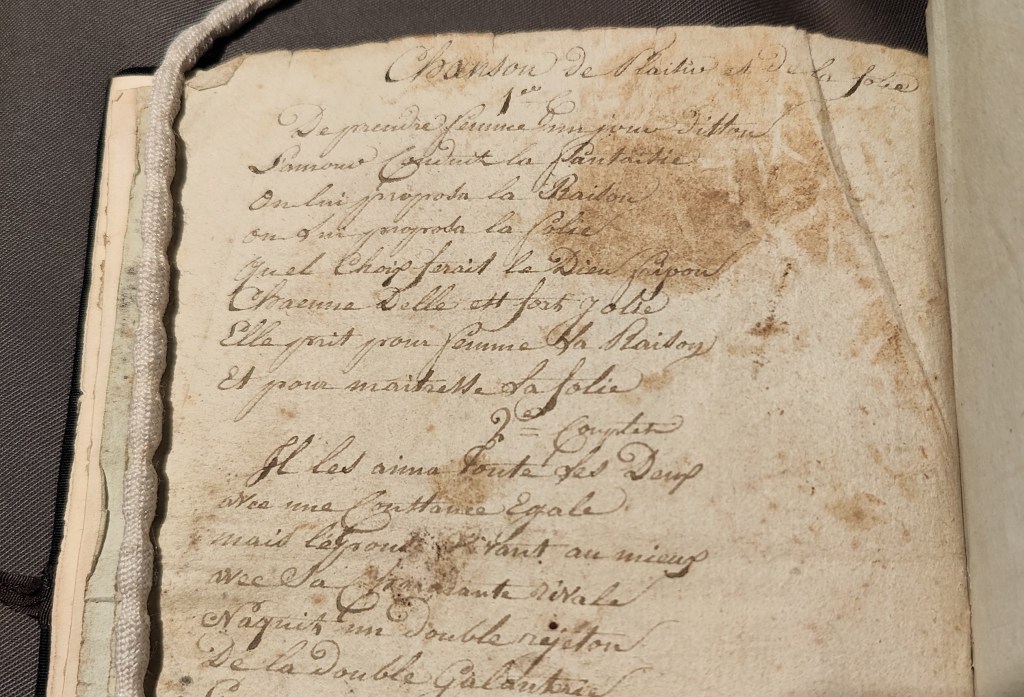 Chanson de Plaisir et de la folie
1er C
De prendre femme un jour ditton
L'amour Conduit la fantaisie
On lui proposa la Raison
on lui proposa la folie
quel Choix ferait le Dieu fripon
Chacune Delle est fort jolie
Elle prit pour femme la Raison
Et pour maitresse la folie
2e Couplet
Il les aima toute les Deux
avec une Constance Egale
mais l'epouse vivant au mieux
avec Sa Charmante rivale
Naquit un double rejeton
De la double Galanterie